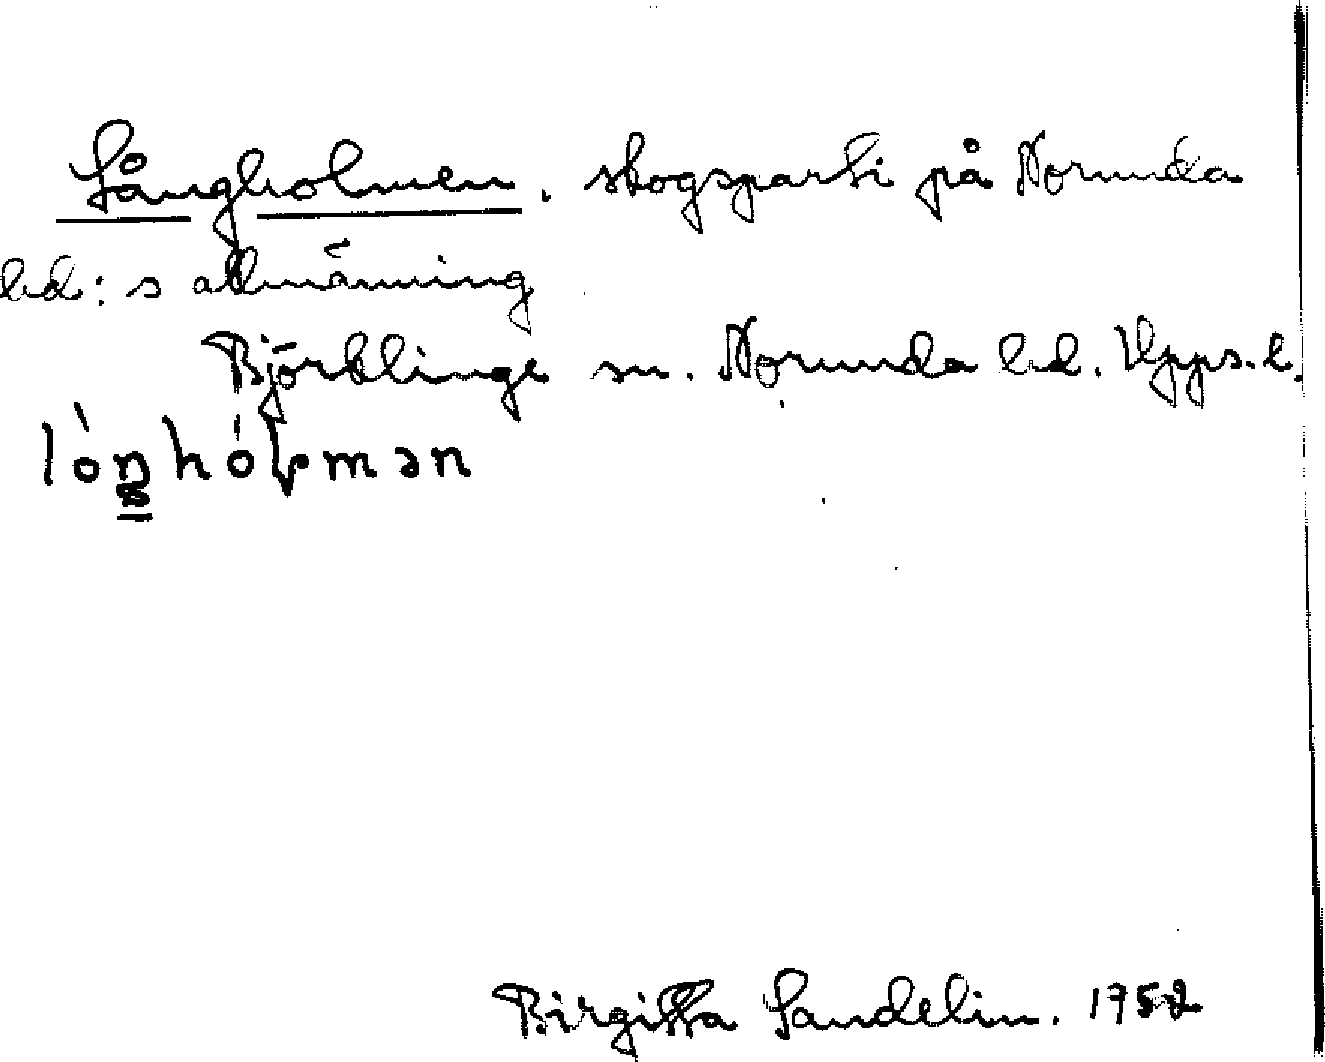 Långholmen. skogsparti på Norunda
hd:s allmänning
Björklinge sn. Norunda hd. Upps.l.
Birgitta Sandelin. 1952